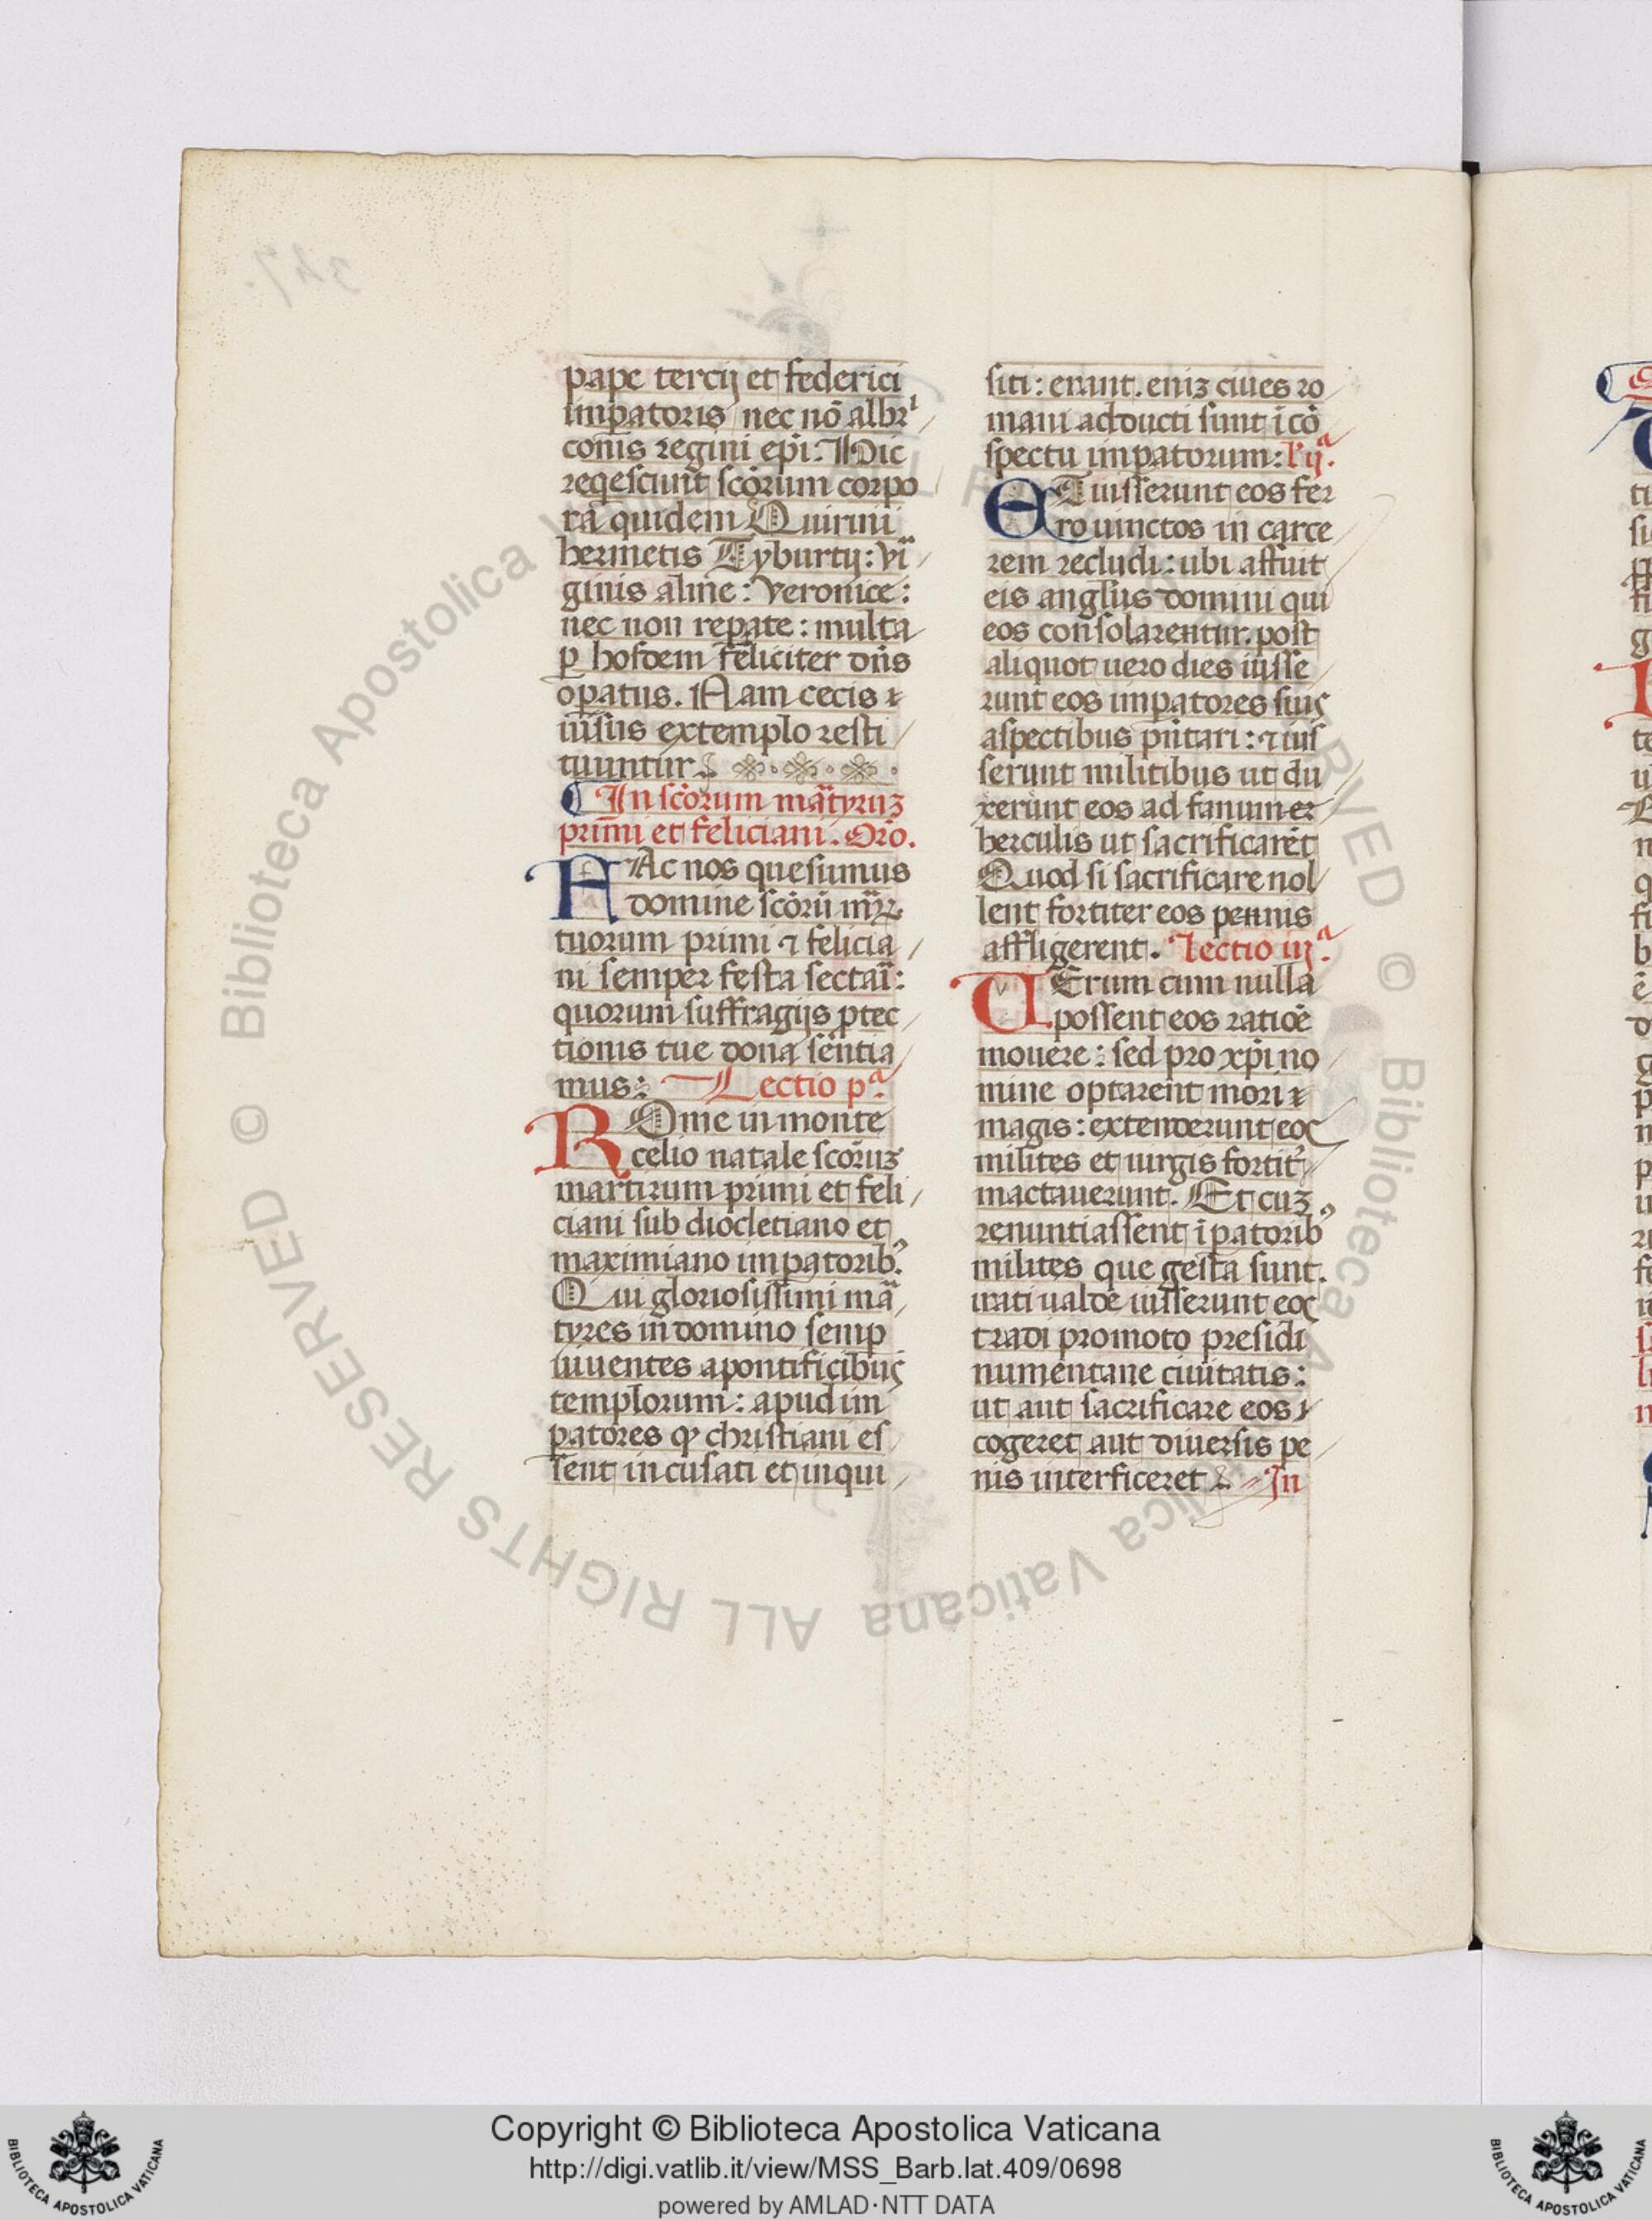 pape tercij et federici
impatoris nec nō albrı
conis regini epi: Hic
reqescunt scōrum corpo
ra quidem Quirini
hermetis Tyburtij: vi
ginis aline: Veronice:
nec non repate: multa
p hosdem feliciter dn̄s
opatus. Nam cecis ⁊
uisus extemplo resti
tuuntur
In scōrum mātyruꝫ
primi et feliciani. Orō.
FAc nos quesumus
domine scōrū mr̄
tuorum primi ⁊ felicia
ni semper festa sectai:
quorum suffragijs ptec
tionis tue dona sentia
mus: Lectio pa.
ROme in monte
celio natale scōruꝫ
martirum primi et feli
ciani sub diocletiano et
maximiano impatorib9.
Qui gloriosissimi mā
tyres in domino semp
uiuentes apontificibus
templorum: apud im
patores ꝙ christiani es
sent incusati et inqui
siti: erant. eniꝫ ciues ro
mani adducti sunt ī cō
spectu impatorum: l' ija.
ET iusserunt eos fer
ro uinctos in carce
rem recludi: ubi affuit
eis anglus domini qui
eos consolarentur. post
aliquot uero dies iusse
runt eos impatores suis
aspectibus pn̄tari: ⁊ ius
serunt militibus ut du
xerunt eos ad fanum er
herculis ut sacrificarēt
Quod si sacrificare nol
lent fortiter eos pennis
affligerent. Lectio iija.
VErum cum nulla
possent eos ratiōe
mouere: sed pro xp̄i no
mine optarent mori ⁊
magis: extenderunt eos
milites et uirgis fortit'
mactauerunt. Et cuꝫ
renuntiassent īpatorib9
milites que gesta sunt.
irati ualde iusserunt eos
tradi promoto presidi
numentane ciuitatis:
ut aut sacrificare eos
cogeret aut diuersis pe
nis interficeret In
Copyright © Biblioteca Apostolica Vaticana
http://digi.vatlib.it/view/MSS_Barb.lat.409/0698
powered by AMLAD·NTT DATA
© Biblioteca Apostolica Vaticana ALL RIGHTS RESERVED
BIBLIOTECA APOSTOLICA VATICANA
BIBLIOTECA APOSTOLICA VATICANA